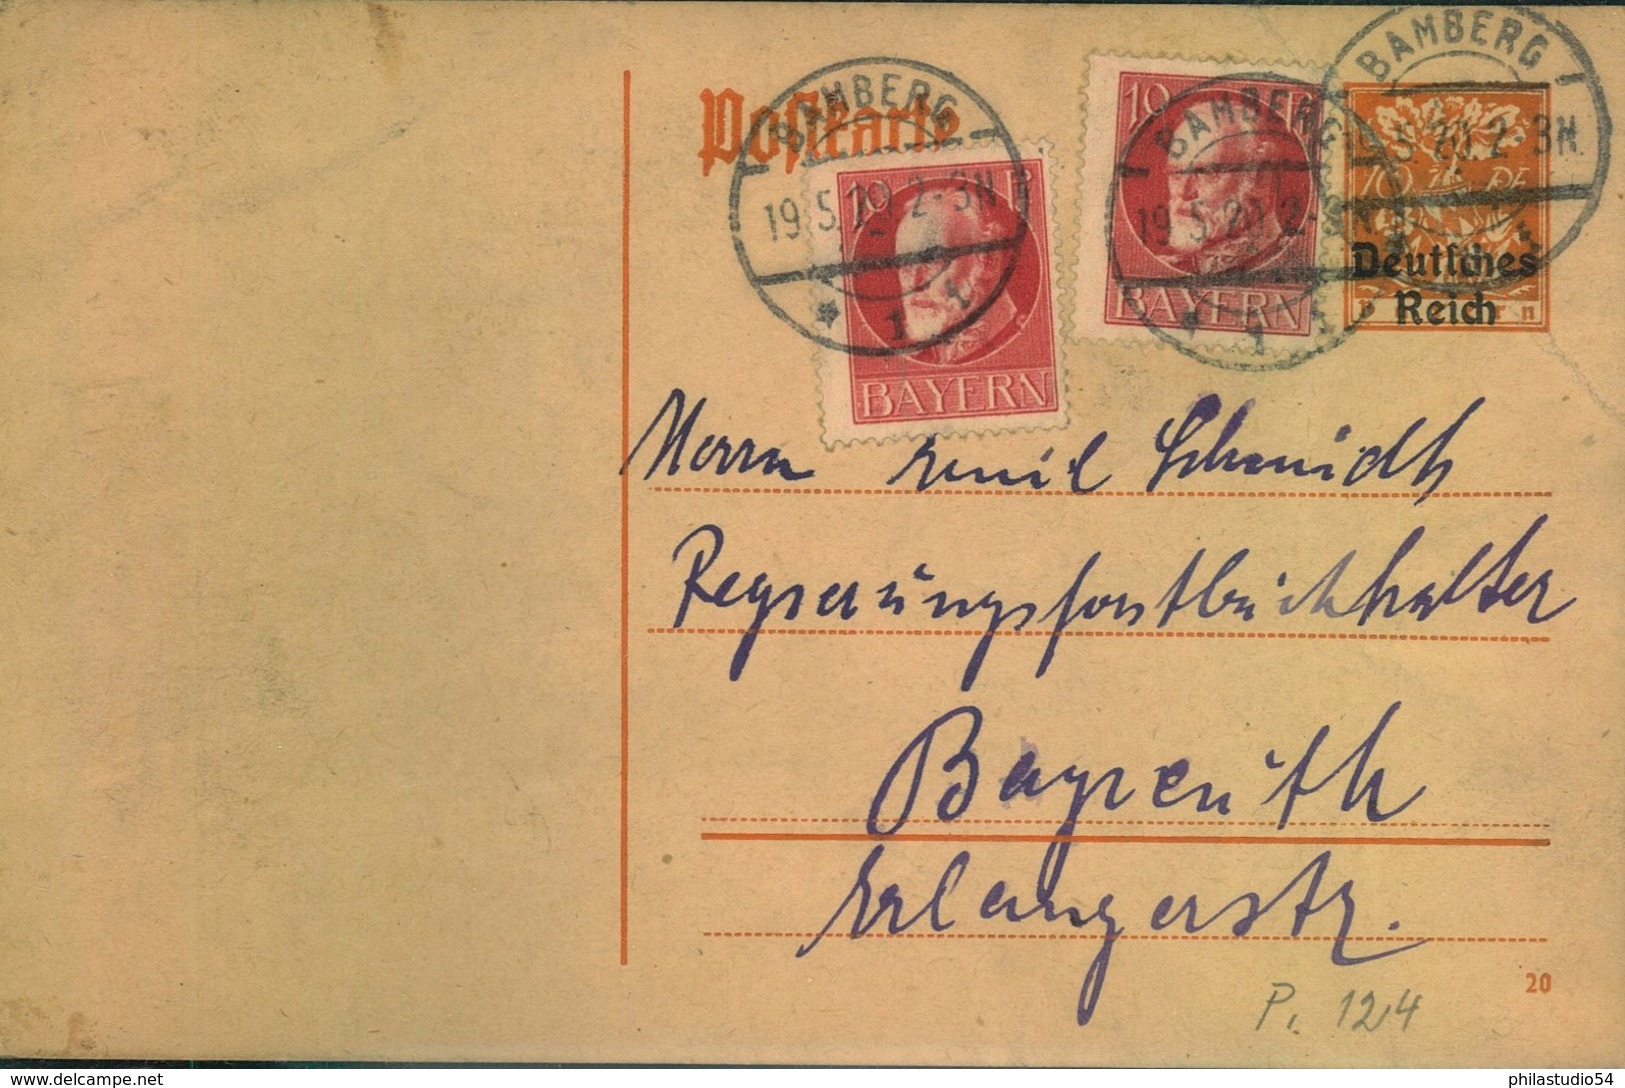 Postkarte
BAMBERG
19.5.20. 2-3N
* 1 1
10 P
BAYERN
BAMBERG
19.5.20. 2-3N
* 1 1
10 P
BAYERN
BAMBERG
5.20. 2-3N.
10 PF
Deutsches
Reich
Herrn Emil Schmidt
Regierungsforstbuchhalter
Bayreuth
Erlangerstr.
20
P. 124
delcampe.net
philastudio54